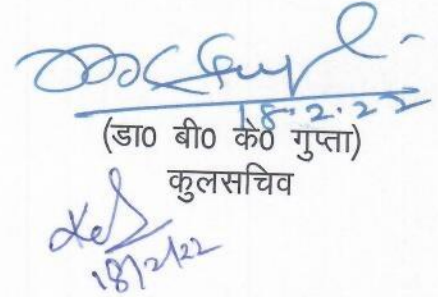 18.2.22
(डा0 बी0 के0 गुप्ता)
कुलसचिव
18/2/22